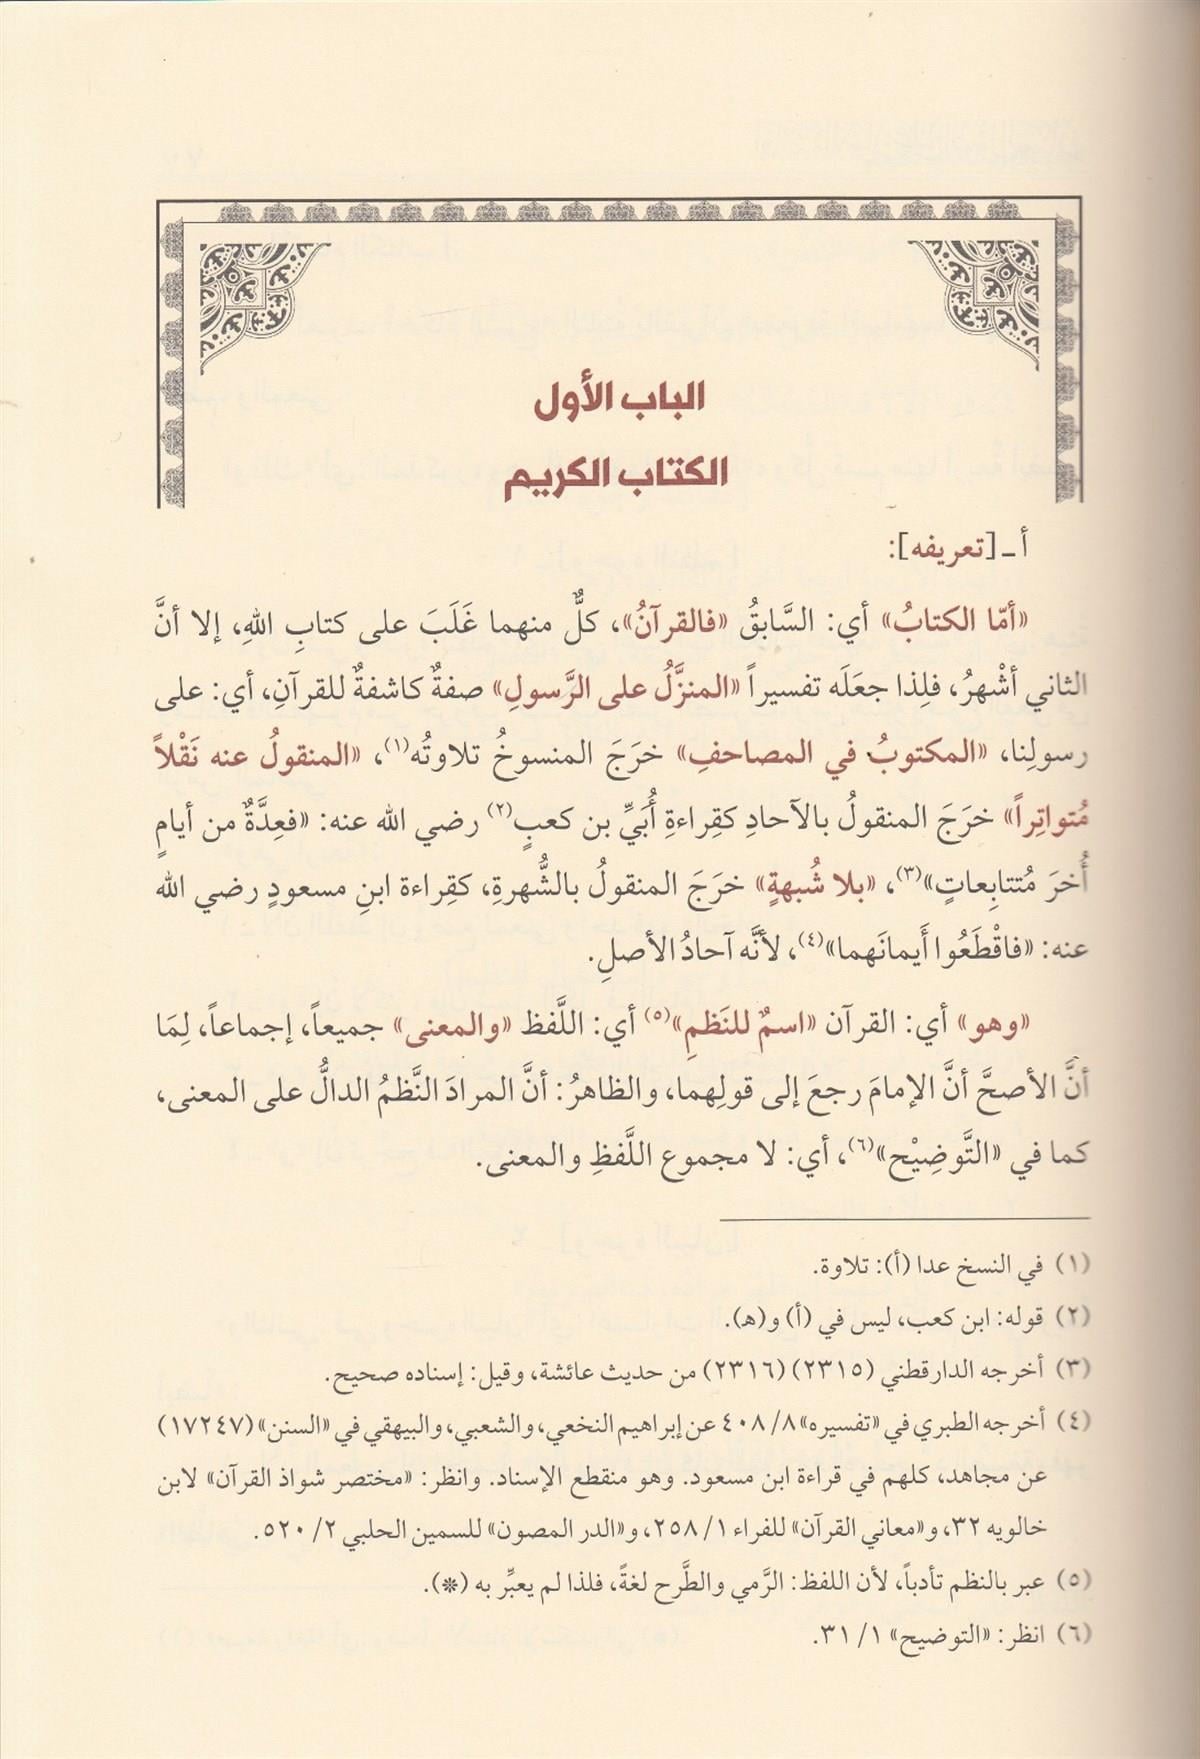 الباب الأول
الكتاب الكريم
أ ـ [تعريفه]:
«أمّا الكتابُ» أي: السَّابقُ «فالقرآنُ»، كلٌّ منهما غَلَبَ على كتابِ اللهِ، إلا أنَّ
الثاني أشْهرُ، فلِذا جعَلَه تفسيراً «المنزَّلُ على الرَّسولِ» صفةٌ كاشفةٌ للقرآنِ، أي: على
رسولِنا، «المكتوبُ في المصاحفِ» خرَجَ المنسوخُ تلاوتُه(١)، «المنقولُ عنه نَقْلاً
مُتواتِراً» خرَجَ المنقولُ بالآحادِ كقِراءةِ أُبَيِّ بن كعبٍ(٢) رضي الله عنه: «فعِدَّةٌ من أيامٍ
أُخرَ مُتتابِعاتٍ»(٣)، «بلا شُبهةٍ» خرَجَ المنقولُ بالشُّهرةِ، كقِراءة ابنِ مسعودٍ رضي الله
عنه: «فاقْطَعُوا أَيمانَهما»(٤)، لأنَّه آحادُ الأصلِ.
«وهو» أي: القرآن «اسمٌ للنَظمِ»(٥) أي: اللَّفظ «والمعنى» جميعاً، إجماعاً، لِمَا
أنَّ الأصحَّ أنَّ الإمامَ رجعَ إلى قولِهما، والظاهرُ: أنَّ المرادَ النَّظمُ الدالُّ على المعنى،
كما في «التَّوضِيْح»(٦)، أي: لا مجموع اللَّفظِ والمعنى.
(١) في النسخ عدا (أ): تلاوة.
(٢) قوله: ابن كعب، ليس في (أ) و(هـ).
(٣) أخرجه الدارقطني (٢٣١٥) (٢٣١٦) من حديث عائشة، وقيل: إسناده صحيح.
(٤) أخرجه الطبري في «تفسيره» ٨/ ٤٠٨ عن إبراهيم النخعي، والشعبي، والبيهقي في «السنن» (١٧٢٤٧)
عن مجاهد، كلهم في قراءة ابن مسعود. وهو منقطع الإسناد. وانظر: «مختصر شواذ القرآن» لابن
خالويه ٣٢، و«معاني القرآن» للفراء ١/ ٢٥٨، و«الدر المصون» للسمين الحلبي ٢/ ٥٢٠.
(٥) عبر بالنظم تأدباً، لأن اللفظ: الرَّمي والطَّرح لغةً، فلذا لم يعبِّر به (*).
(٦) انظر: «التوضيح» ١/ ٣١.